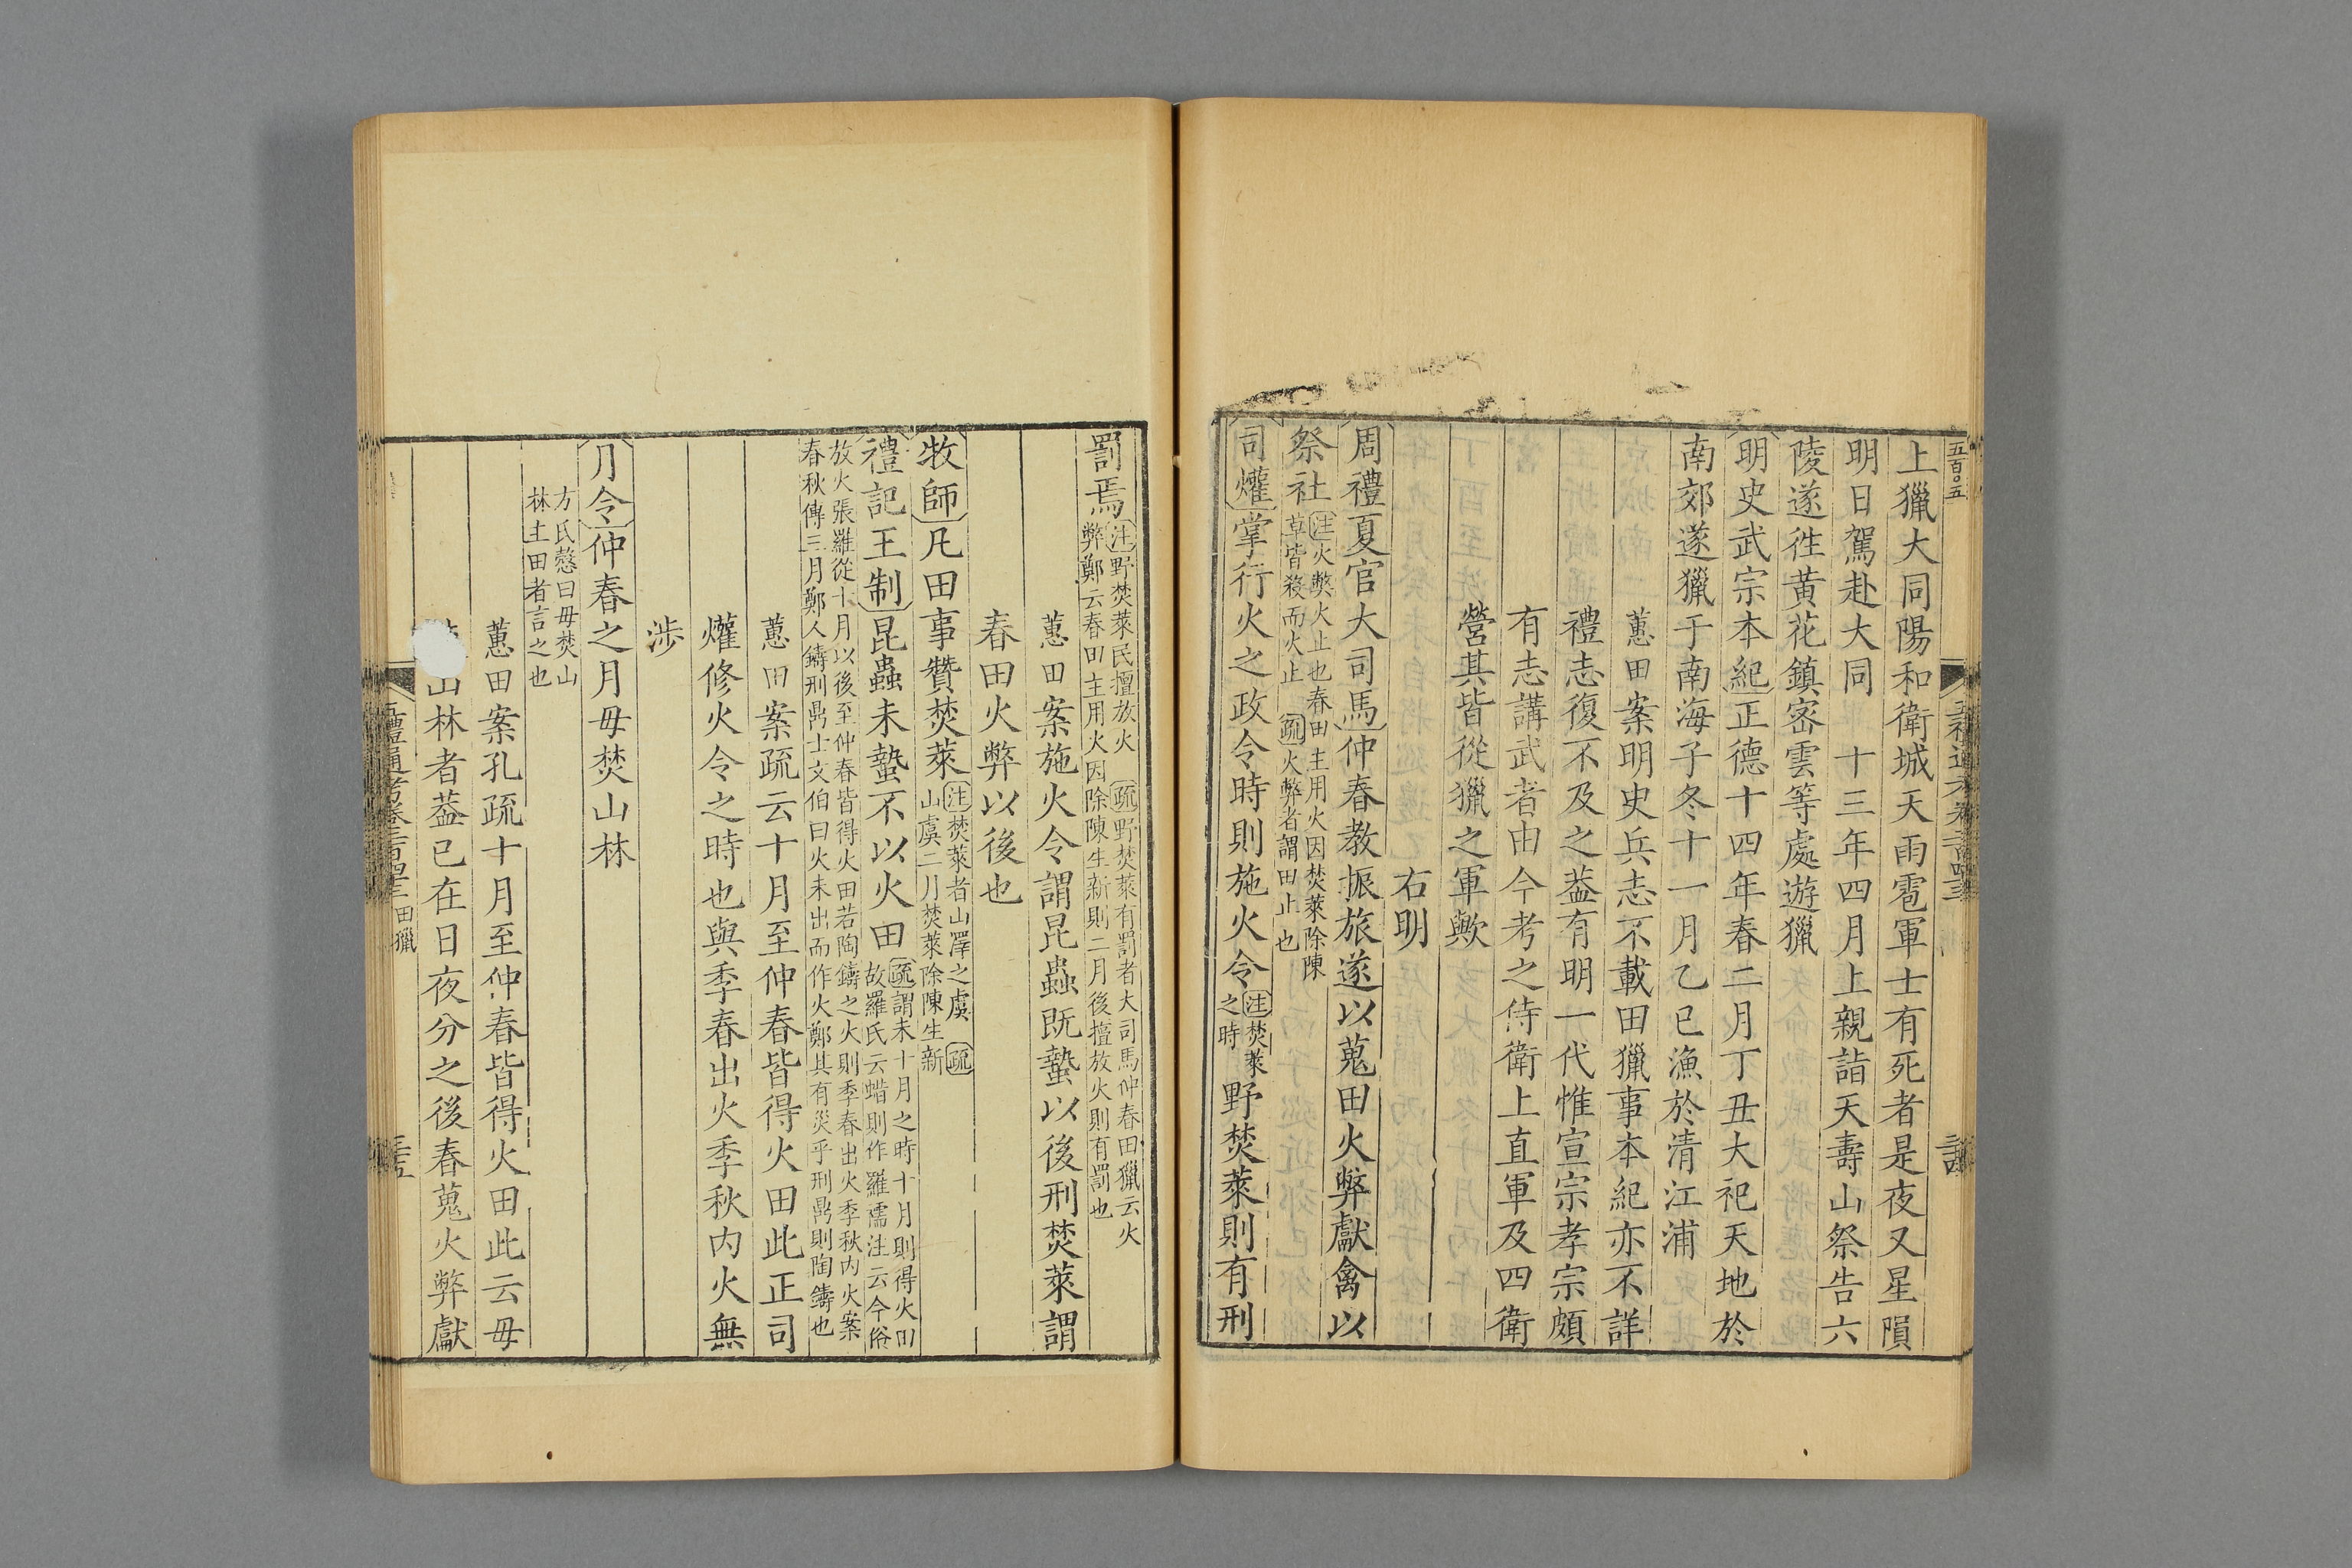 五百〇五
上獵大同陽和衛城天雨雹軍士有死者是夜又星隕
明日駕赴大同　十三年四月上親詣天壽山祭告六
陵遂徃黄花鎮密雲等處遊獵
明史武宗本紀正德十四年春二月丁丑大祀天地於
南郊遂獵于南海子冬十一月乙巳漁於清江浦
蕙田案明史兵志不載田獵事本紀亦不詳
禮志復不及之葢有明一代惟宣宗孝宗頗
有志講武者由今考之侍衛上直軍及四衛
營其皆從獵之軍歟
右明
周禮夏官大司馬仲春教振旅遂以蒐田火弊獻禽以
祭社注火弊火止也春田主用火因焚萊除陳
草皆殺而火止疏火弊者謂田止也
司爟掌行火之政令時則施火令注焚萊
之時野焚萊則有刑
罰焉注野焚萊民擅放火疏野焚萊有罰者大司馬仲春田獵云火
弊鄭云春田主用火因除陳生新則二月後擅放火則有罰也
蕙田案施火令謂昆蟲既蟄以後刑焚萊謂
春田火弊以後也
牧師凡田事贊焚萊注焚萊者山澤之虞疏
山虞二月焚萊除陳生新
禮記王制昆蟲未蟄不以火田疏謂未十月之時十月則得火田
故羅氏云蜡則作羅襦注云今俗
放火張羅從十月以後至仲春皆得火田若陶鑄之火則季春出火季秋内火案
春秋傳三月鄭人鑄刑鼎士文伯曰火未出而作火鄭其有災乎刑鼎則陶鑄也
蕙田案疏云十月至仲春皆得火田此正司
爟修火令之時也與季春出火季秋内火無
涉
月令仲春之月毋焚山林
方氏慤曰毋焚山
林主田者言之也
蕙田案孔疏十月至仲春皆得火田此云毋
山林者葢已在日夜分之後春蒐火弊獻
五禮通考卷二百四十三　田獵